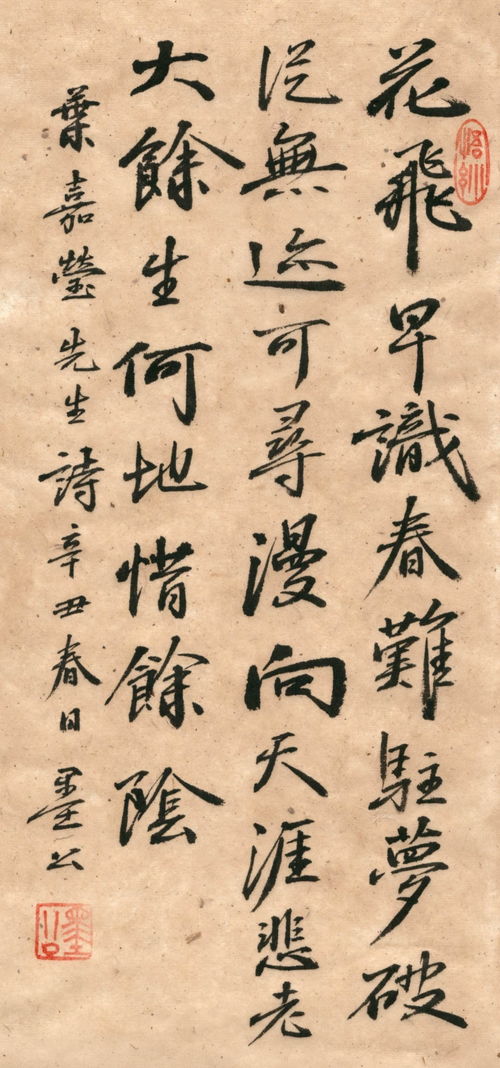 花飛早識春難駐夢破
從無迹可尋漫向天涯悲老
大餘生何地惜餘陰
葉嘉瑩先生詩辛丑春日墨公